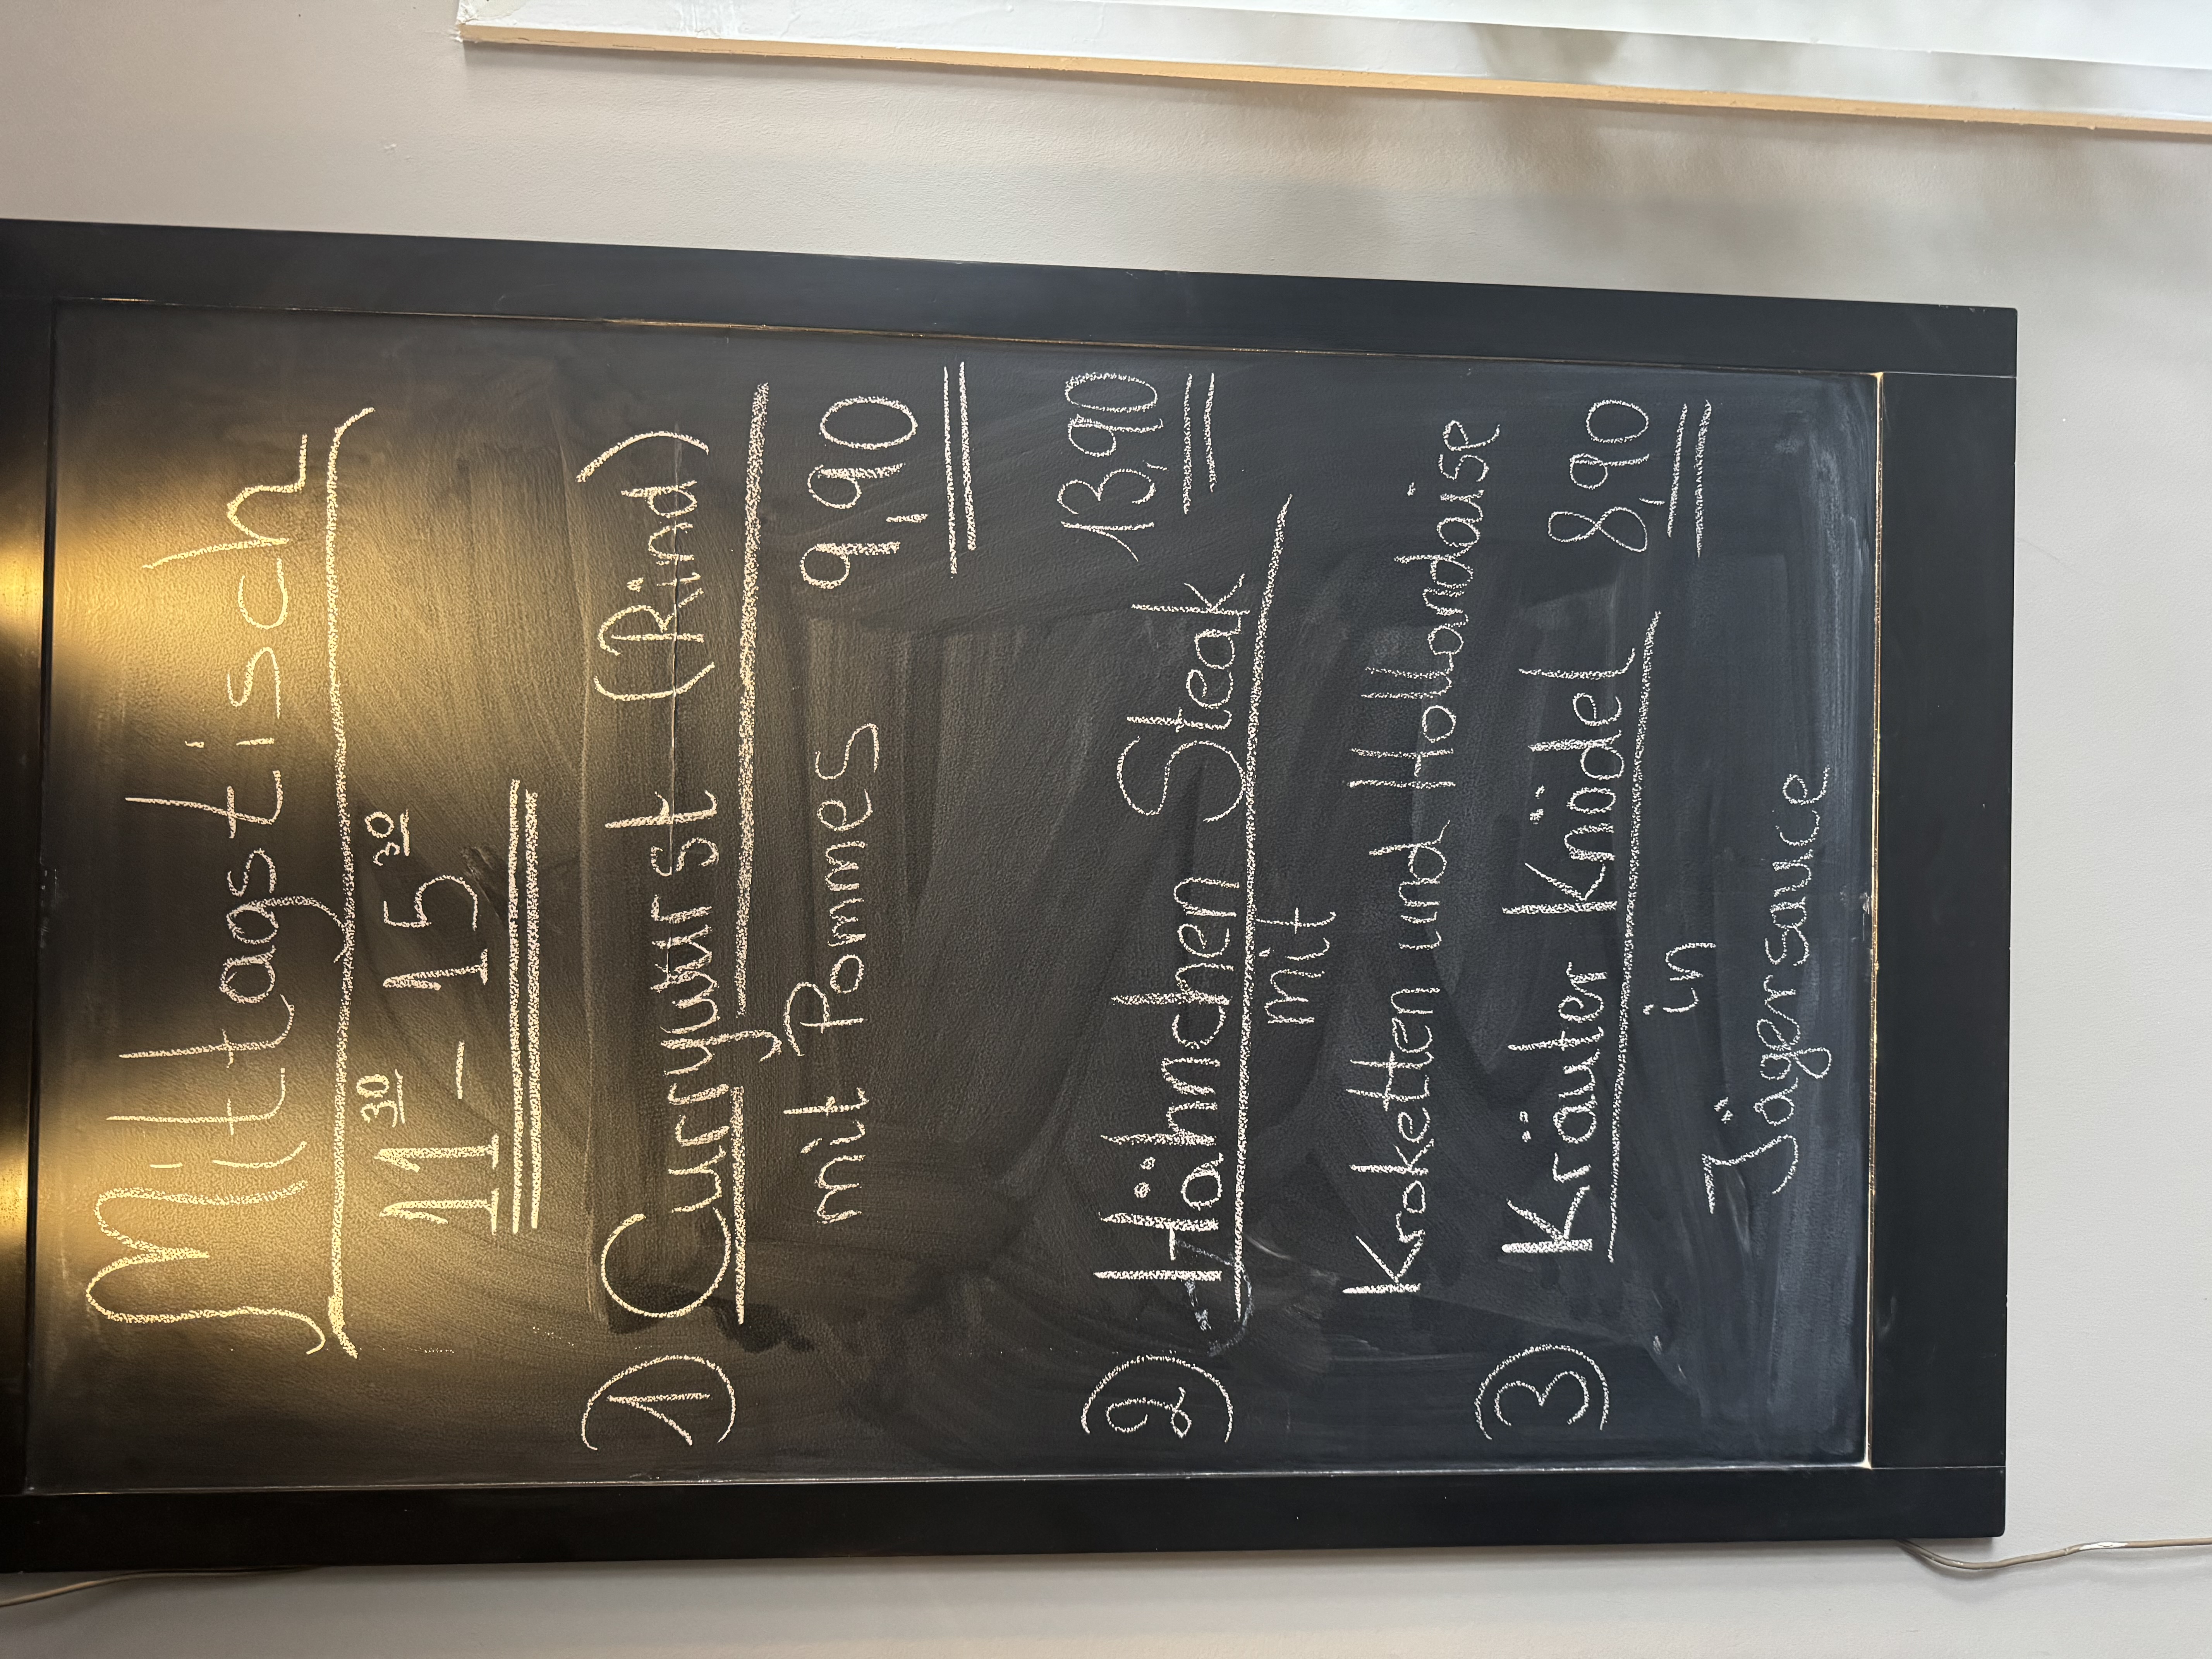 Mittagstisch
11³⁰ – 15³⁰
① Currywurst (Rind)
mit Pommes 9,90
② Hähnchen Steak 13,90
mit
Kroketten und Hollandaise
③ Kräuter Knödel 8,90
in
Jägersauce